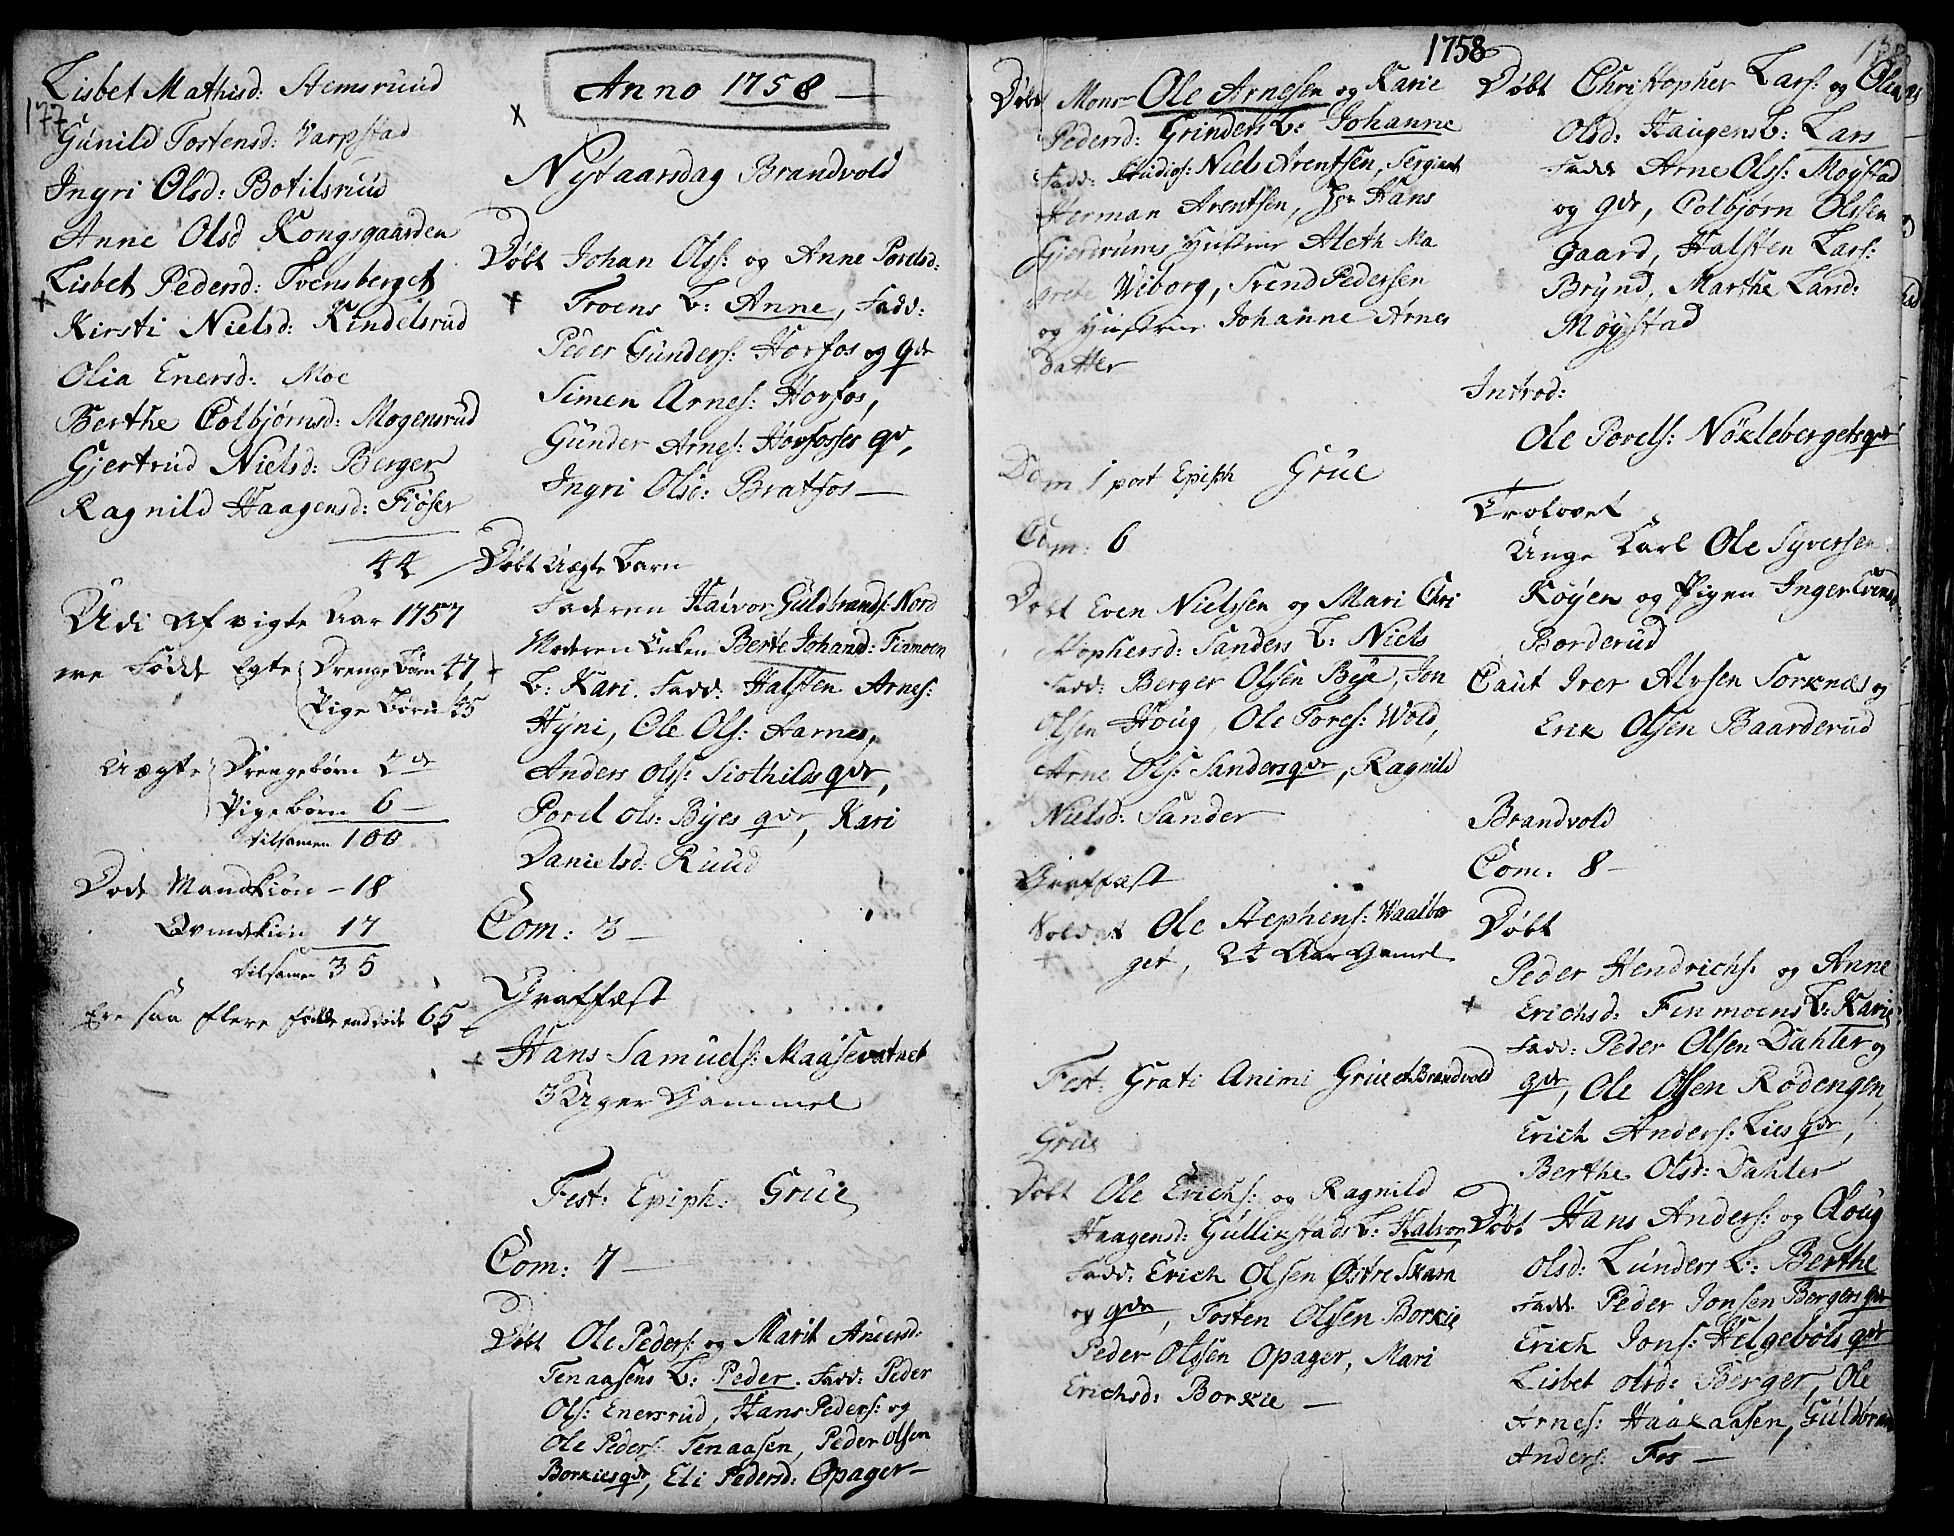 177
Lisbet Mathisd: Stemsruud
Gunild Tostensd: Varpstad
Ingri Olsd: Botilsruud
Anne Olsd Kongsgaarden
Lisbet Pedersd: Tvensberget
Kirsti Nielsd: Kindelsrud
Olia Enersd: Moe
Berthe Colbjørnsd: Mogensrud
Gjertrud Nielsd: Berger
Ragnild Haagensd: Fiøser
44
Udi afvigte Aar 1757
ere Fødde Egte Drengebørn 47
Pigebørn 45
Uægte Drengebørn 2
Pigebørn 6
tilsamen 100
Døde Mandkiøn – 18
Qvindekiøn 17
tilsamen 35
Ere saa flere fødde end døde 65
Anno 1758
Nytaarsdag Brandvold
Døbt Johan Olss: og Anne Povelsd:
Troens B: Anne, Fadd:
Peder Gunders: Horfos og qvr
Simen Arnes: Horfos,
Gunder Arnes: Horfosses qv,
Ingri Olsd: Bratfos
Døbt Uægte Barn
Faderen Halvor Guldbrands: Nord
Moderen Enken Berte Johand: Finmoen
B: Kari. Fadd: Halsten Arnes:
Hyni, Ole Ols: Aarnes,
Anders Olss: Siothilds qvr,
Povel Ols: Byes qvr, Kari
Danielsd: Ruud
Com: 3
Graffæst
Hans Samuels: Maasevatnet
3 Uger Gammel
Fest: Epiph: Grue
Com: 7
Døbt Ole Peders: og Marit Andersd:
Tenaasens B: Peder. Fadd: Peder
Ols: Enersrud, Hans Peders: og
Ole Peders: Tenaasen, Peder Olsen
Borkies qvr, Eli Pedersd: Opager
1758
Døbt Mons Ole Arnesen og Karie
Pedersd: Grinders B: Johanne
Fadd: Studios: Niels Arentsen, Sergiant
Herman Arentsen, Hans
Gjerdrums Hustrue Aleth Ma
grete Wiborg, Trend Pedersen
og Hustrue Johanne Arnes
Datter
Dom 1 post Epiph Grue
Com: 6
Døbt Even Nielssen og Mari Chri
stophersd: Sanders B: Niels
Fadd: Berger Olssen Bye, Jon
Olsen Houg, Ole Tores: Wold,
Arne Ols: Sanders qvr, Ragnild
Nielsd: Sander
Graffæst
Soldat Ole Stephens: Waalber
get, 24 Aar Gamel
Fest: Grati Animi Grue et Brandvold
Grue
Døbt Ole Erichs: og Ragnild
Haagensd: Gullikstads B: Halvor,
Fadd: Erich Olsen Østre Skara
og qvr, Tosten Olssen Borkie
Peder Olssen Opager, Mari
Erichsd: Borkie
Døbt Christopher Lars: og Olea
Olsd: Haugens B: Lars
Fadd Arne Olss: Møystad
og qvr, Colbjørn Olssen
Gaard, Halsten Lars:
Brynd, Marthe Larsd:
Møystad
Introd:
Ole Povels: Nøklebergets qvr
Trolovet
Unge Karl Ole Syversen
Køyen og Pigen Inger
Borderud
Caut Iver Alvsen Sorknæs og
Erik Olsen Baarderud
Brandvold
Com: 8
Døbt
Peder Hendrichs: og Anne
Erichsd: Finmoens B: Karie
Fadd: Peder Olsen Dahler og
qvr, Ole Olsen Rodengen,
Erich Anders: Lies qvr,
Berthe Olsd: Dahler
Døbt Hans Anders: og Oloug
Olsd: Lunders B: Berthe
Fadd. Peder Jonsen Bergers qvr
Erich Jons: Helgebøls qvr
Lisbet Olsd: Berger, Ole
Arnes: Haakaasen, Guldbran
Anders: Fos